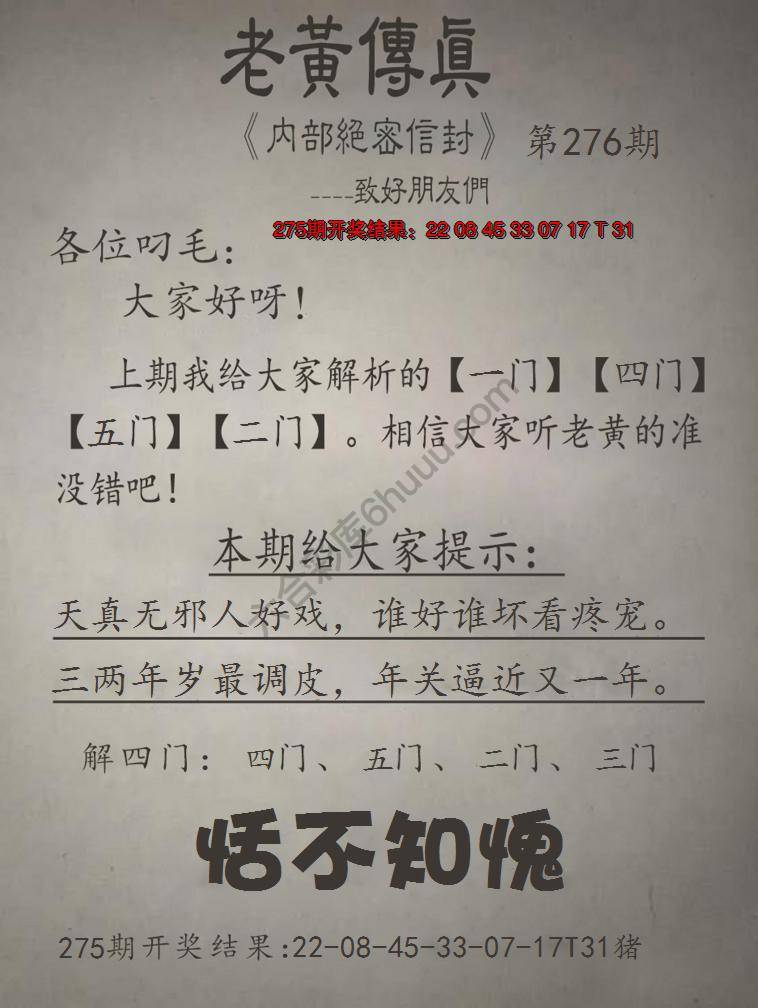 老黃傳眞
《内部絕密信封》 第276期
----致好朋友們
275期开奖结果：22 08 45 33 07 17 T 31
各位叼毛：
大家好呀！
上期我给大家解析的【一门】【四门】
【五门】【二门】。相信大家听老黄的准
没错吧！
本期给大家提示：
天真无邪人好戏，谁好谁坏看疼宠。
三两年岁最调皮，年关逼近又一年。
解四门： 四门、 五门、 二门、 三门
恬不知愧
275期开奖结果:22-08-45-33-07-17T31猪
六合彩库6huuu.com